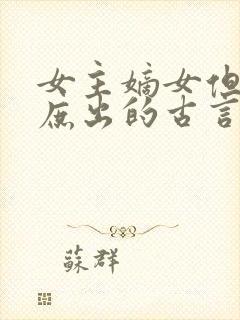 女主嫡女但
庶出的古言
蘇群